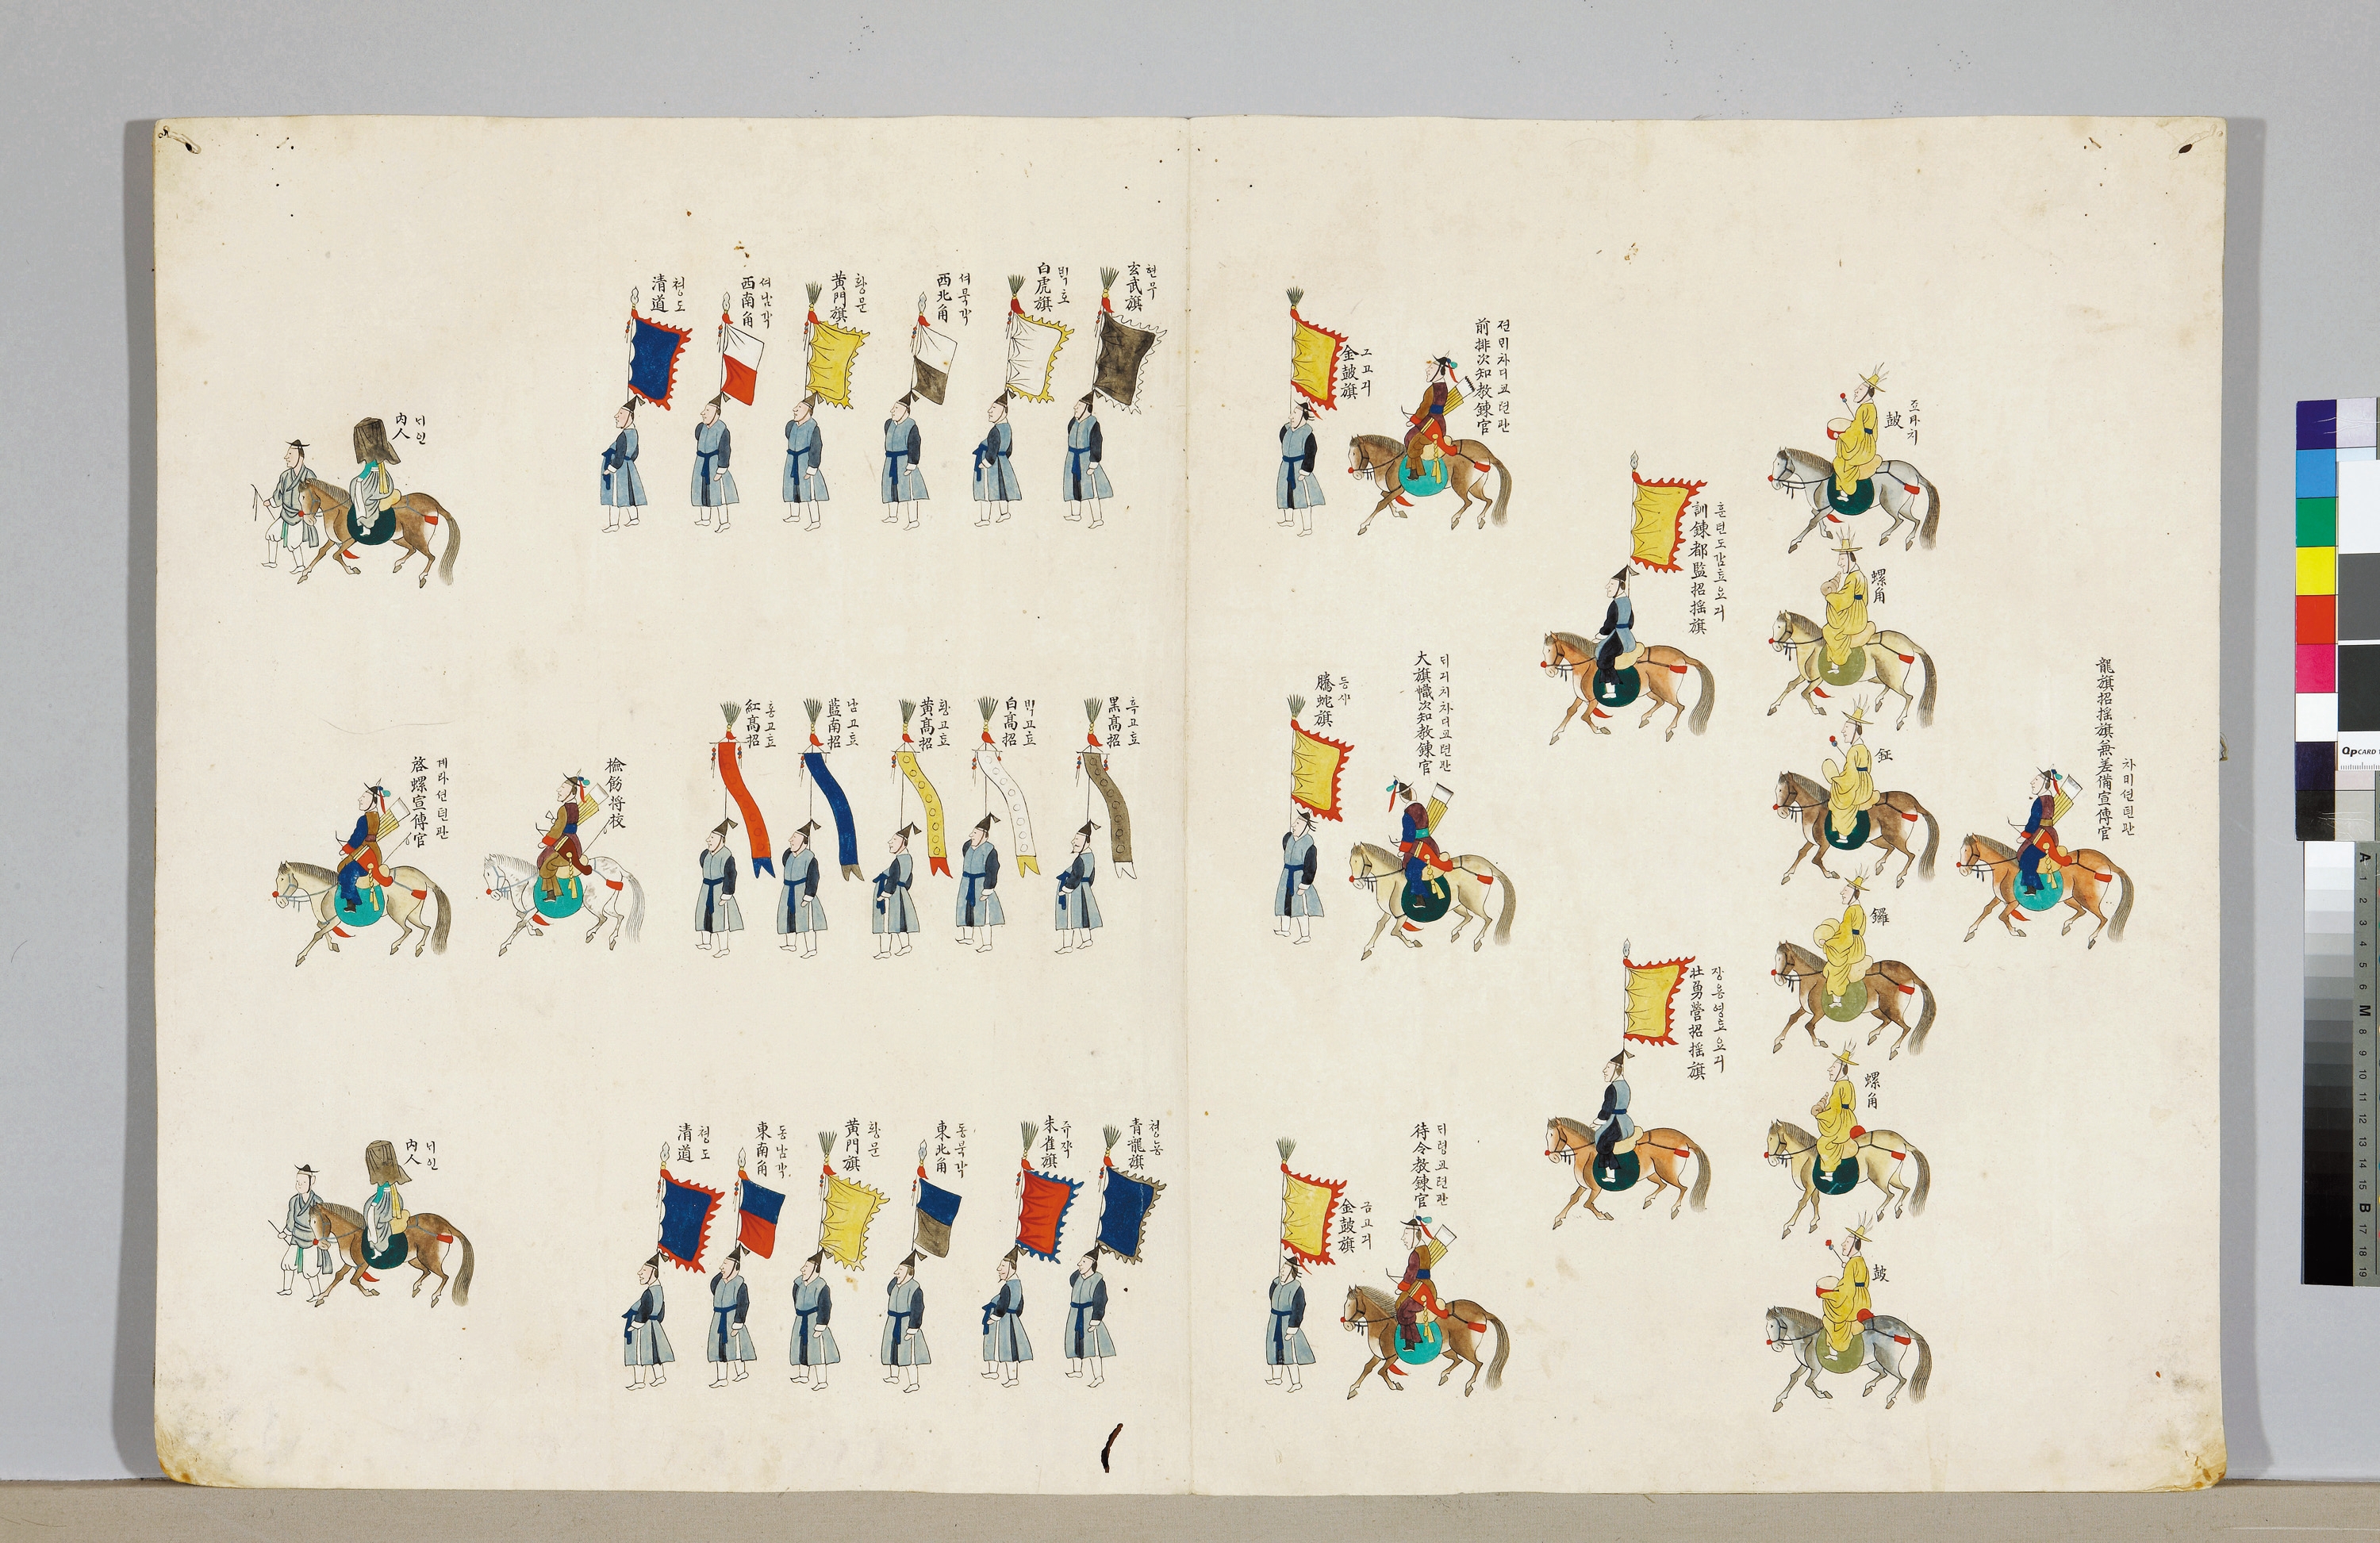 龍旗招搖旗兼差備宣傳官
차비션뎐관
鼓
죠라치
螺角
鉦
鑼
螺角
鼓
訓鍊都監招搖旗
훈련도감쵸요긔
壯勇營招搖旗
장용영쵸요긔
前排次知教鍊官
젼비차디교련관
金鼓旗
고고긔
大旗幟次知教鍊官
디긔치차디교련관
騰蛇旗
등샤
待令教鍊官
디령교련관
金鼓旗
금고긔
玄武旗
현무
白虎旗
빅호
西北角
셔북각
黃門旗
황문
西南角
셔남각
清道
쳥도
黑高招
흑고쵸
白高招
빅고쵸
黃高招
황고쵸
藍南招
남고쵸
紅高招
홍고쵸
青龍旗
쳥뇽
朱雀旗
쥬쟉
東北角
동북각
黃門旗
황문
東南角
동남각
清道
쳥도
檢飭將校
內人
너인
啓螺宣傳官
계라션뎐관
內人
너인
QPCARD
A 1 2 3 4 5 6 M 8 9 10 11 12 13 14 15 B 17 18 19